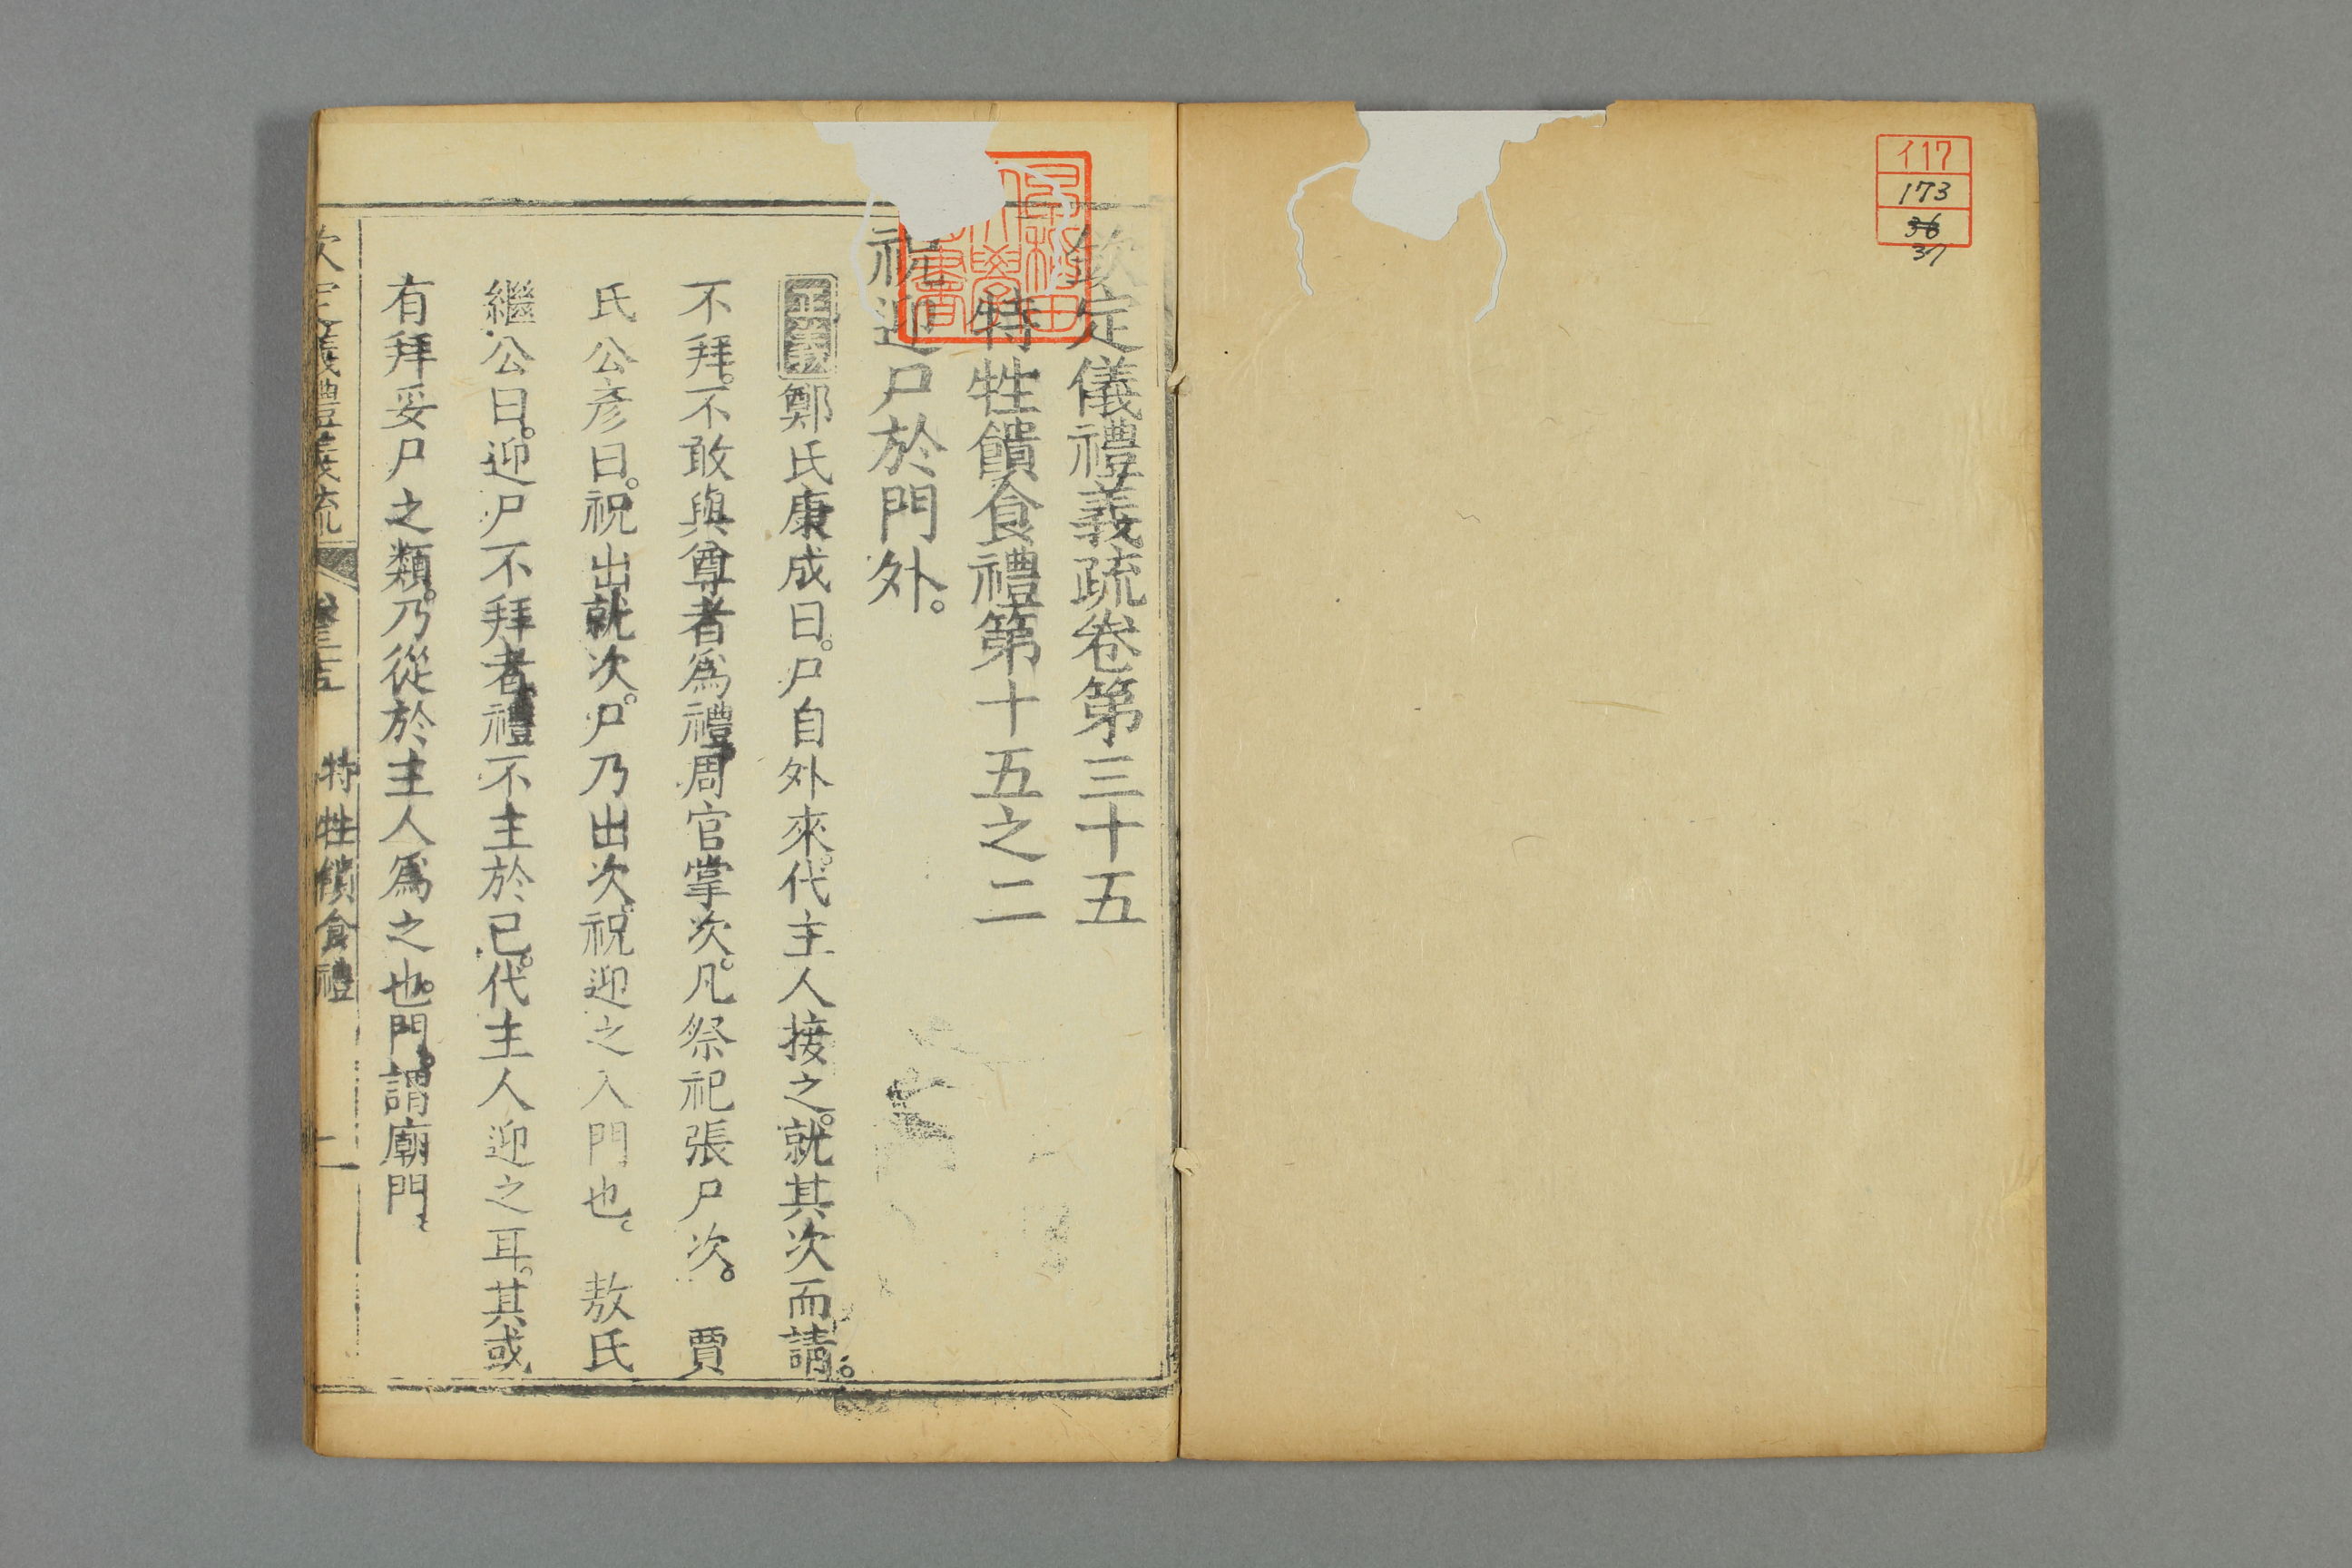 イ17
173
36
37
欽定儀禮義疏卷第三十五
特牲饋食禮第十五之二
祝迎尸於門外。
正義鄭氏康成曰。尸自外來。代主人接之。就其次而請。
不拜。不敢與尊者爲禮。周官掌次。凡祭祀張尸次。 賈
氏公彥曰。祝出就次。尸乃出次。祝迎之入門也。 敖氏
繼公曰。迎尸不拜者。禮不主於已。代主人迎之耳。其或
有拜妥尸之類。乃從於主人爲之也。門。謂廟門。
欽定儀禮義疏 卷三十五 特牲饋食禮 一